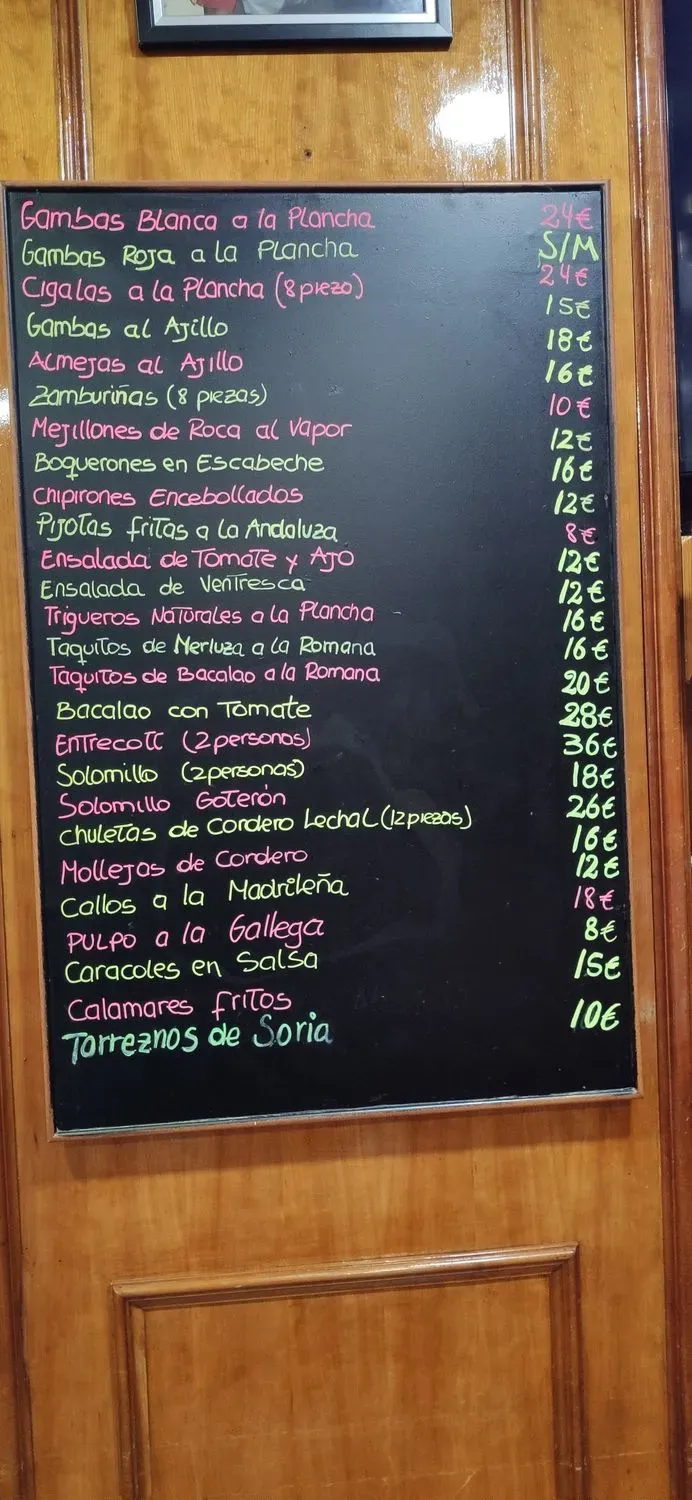 Gambas Blanca a la Plancha 24€
Gambas Roja a la Plancha S/M
Cigalas a la Plancha (8 piezo) 24€
Gambas al Ajillo 15€
Almejas al Ajillo 18€
Zamburiñas (8 piezas) 16€
Mejillones de Roca al Vapor 10€
Boquerones en Escabeche 12€
Chipirones Encebollados 16€
Pijotas fritas a la Andaluza 12€
Ensalada de Tomate y Ajo 8€
Ensalada de Ventresca 12€
Trigueros Naturales a la Plancha 12€
Taquitos de Merluza a la Romana 16€
Taquitos de Bacalao a la Romana 16€
Bacalao con Tomate 20€
Entrecott (2 personas) 28€
Solomillo (2 personas) 36€
Solomillo Goterón 18€
Chuletas de Cordero Lechal (12 piezas) 26€
Mollejas de Cordero 16€
Callos a la Madrileña 12€
PULPO a la Gallega 18€
Caracoles en Salsa 8€
Calamares fritos 15€
Torreznos de Soria 10€